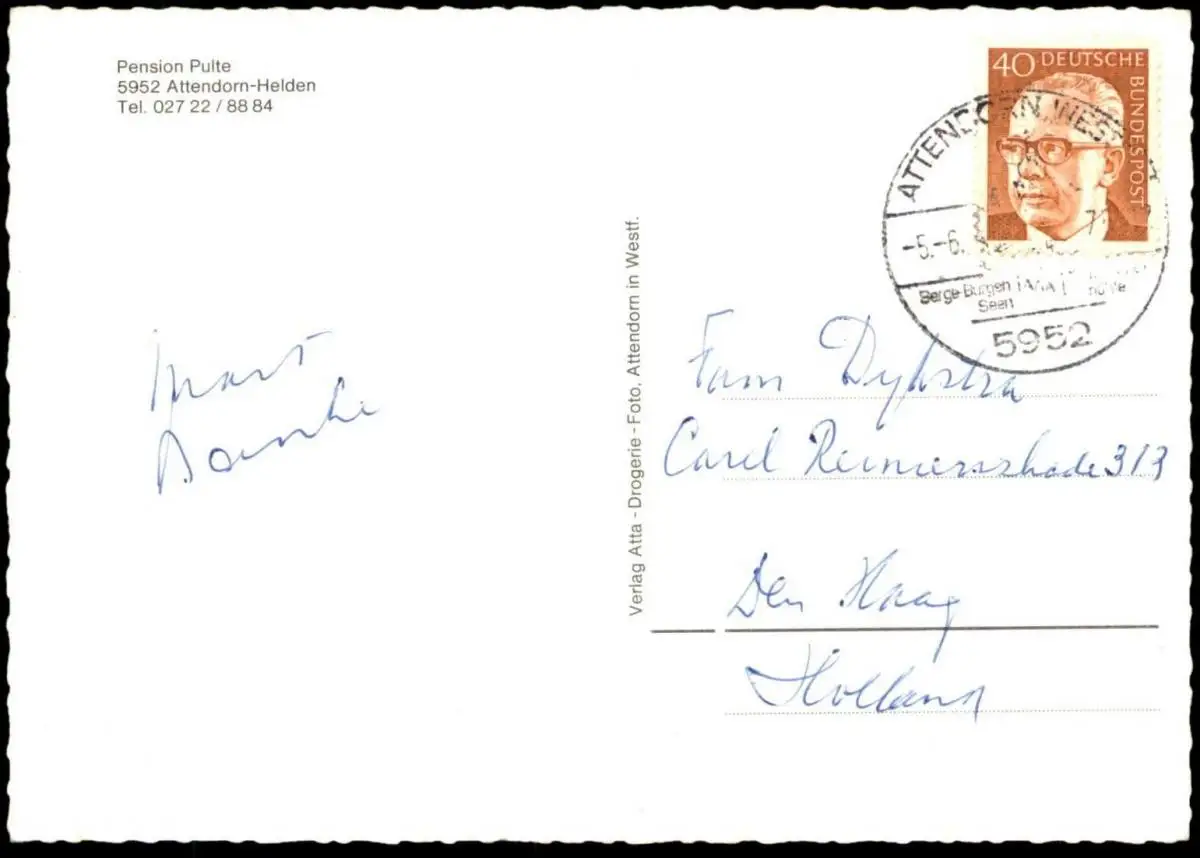 Pension Pulte
5952 Attendorn-Helden
Tel. 027 22 / 88 84
40 DEUTSCHE
BUNDESPOST
ATTENDORN, WEST
-5.-6.
Berge-Burgen
Seen
5952
Verlag Atta - Drogerie - Foto, Attendorn in Westf.
Fam Dykstra
Carel Reinierszkade 313
Den Haag
Holland